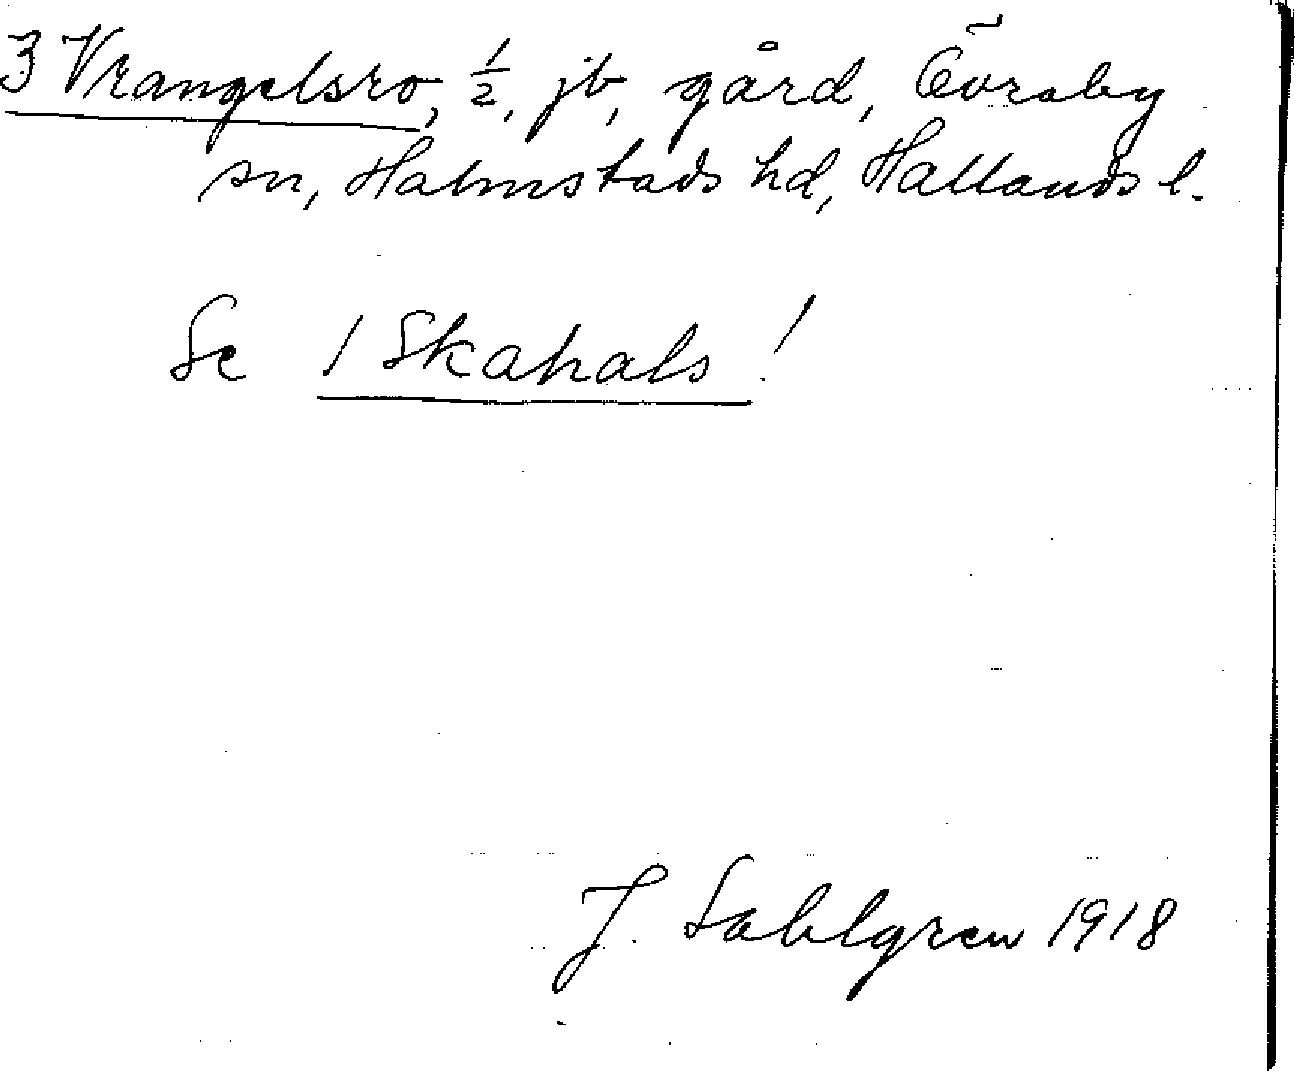 3 Vrangelsro, ½, jb, gård, Övraby
sn, Halmstads hd, Hallands l.
Se 1 Skahals!
J. Sahlgren 1918